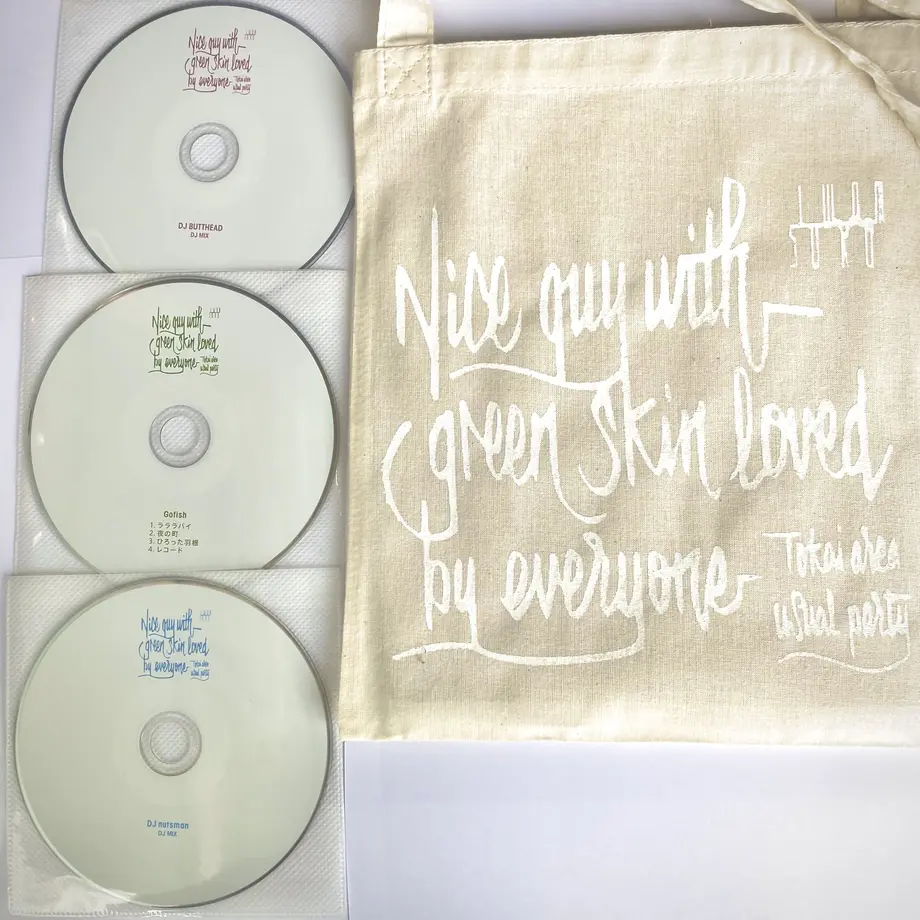 Nice guy with
green skin loved
by everyone
Tokai area
usual party
DJ BUTTHEAD
DJ MIX
Nice guy with
green skin loved
by everyone
Tokai area
usual party
Gofish
1. ラララバイ
2. 夜の町
3. ひろった羽根
4. レコード
Nice guy with
green skin loved
by everyone
Tokai area
usual party
DJ nutsman
DJ MIX
Nice guy with
green skin loved
by everyone
Tokai area
usual party